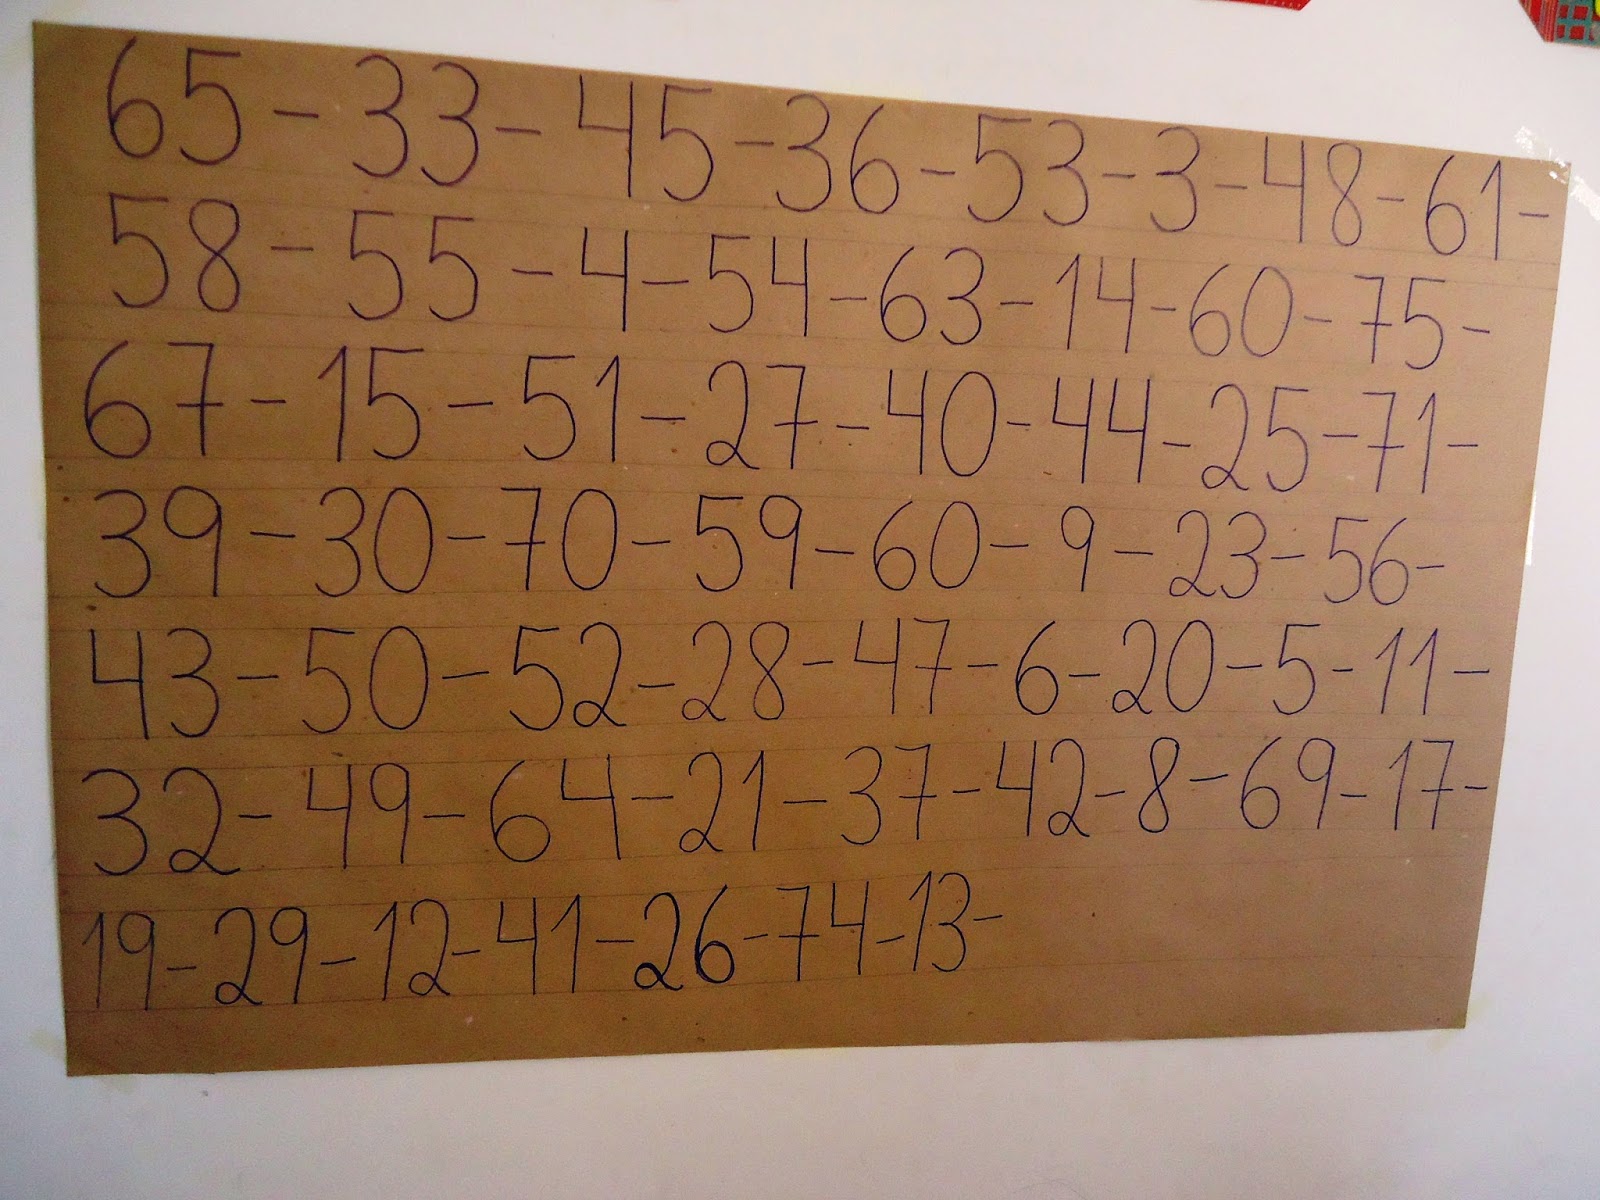 65-33-45-36-53-3-48-61-
58-55-4-54-63-14-60-75-
67-15-51-27-40-44-25-71-
39-30-70-59-60-9-23-56-
43-50-52-28-47-6-20-5-11-
32-49-64-21-37-42-8-69-17-
19-29-12-41-26-74-13-